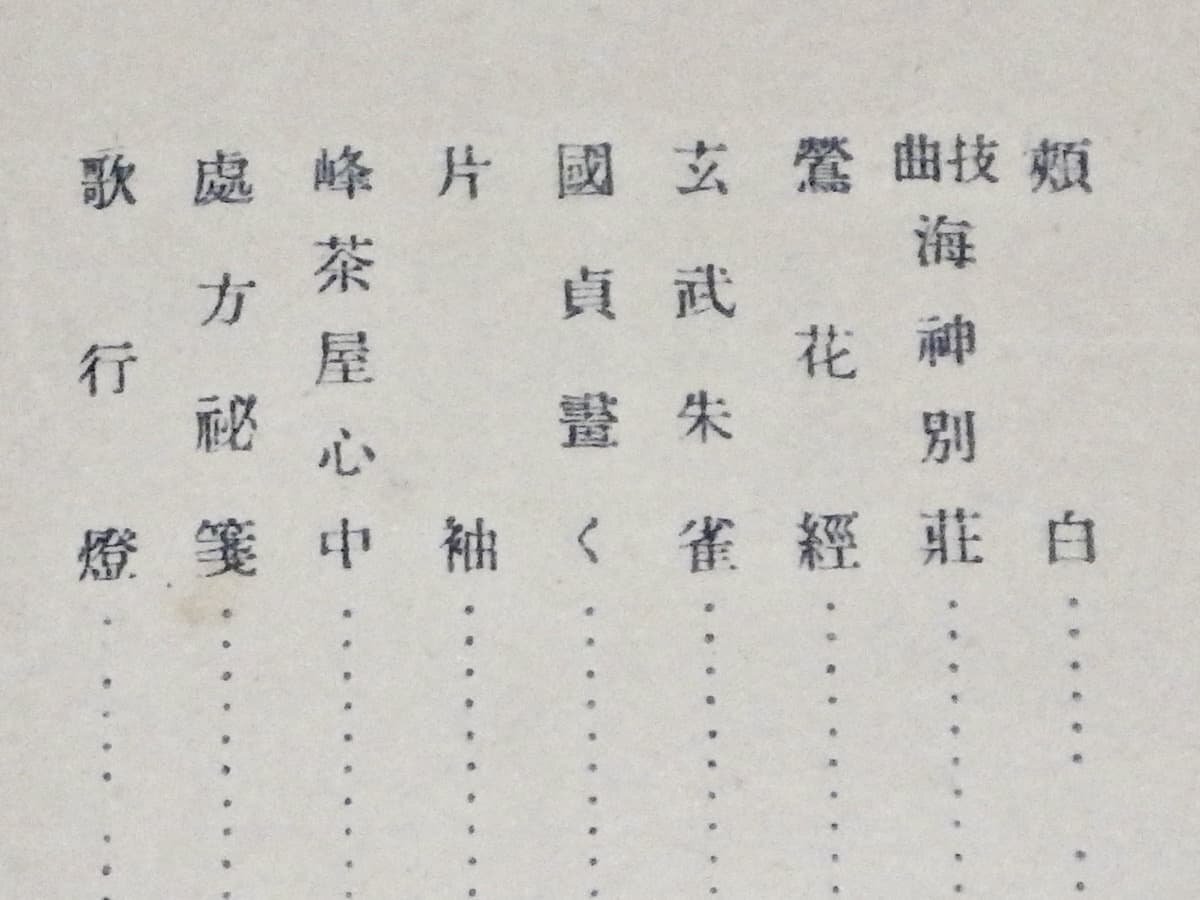 頰白
技曲海神別莊
鶯花經
玄武朱雀
國貞畫く
片袖
峰茶屋心中
處方祕箋
歌行燈